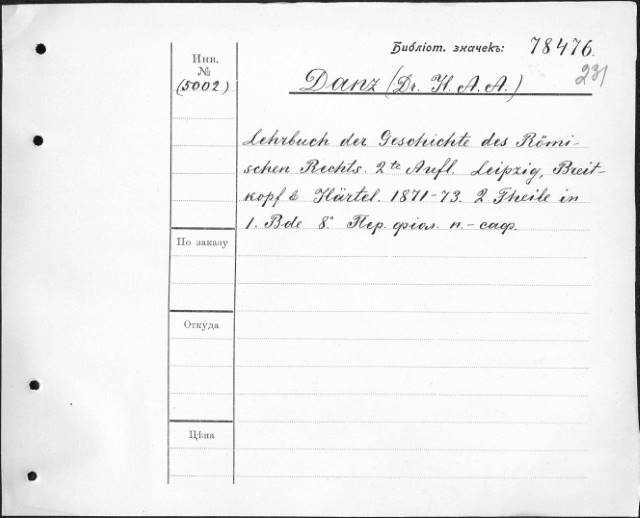 Библіот. значекъ: 78476.
231
Инв.
№
(5002)
Danz (Dr. H. A. A.)
Lehrbuch der Geschichte des Römi-
schen Rechts. 2te Aufl. Leipzig, Breit-
kopf & Härtel. 1871-73. 2 Theile in
1. Bde 8° Пер. фіол. п.-саф.
По заказу
Откуда
Цѣна